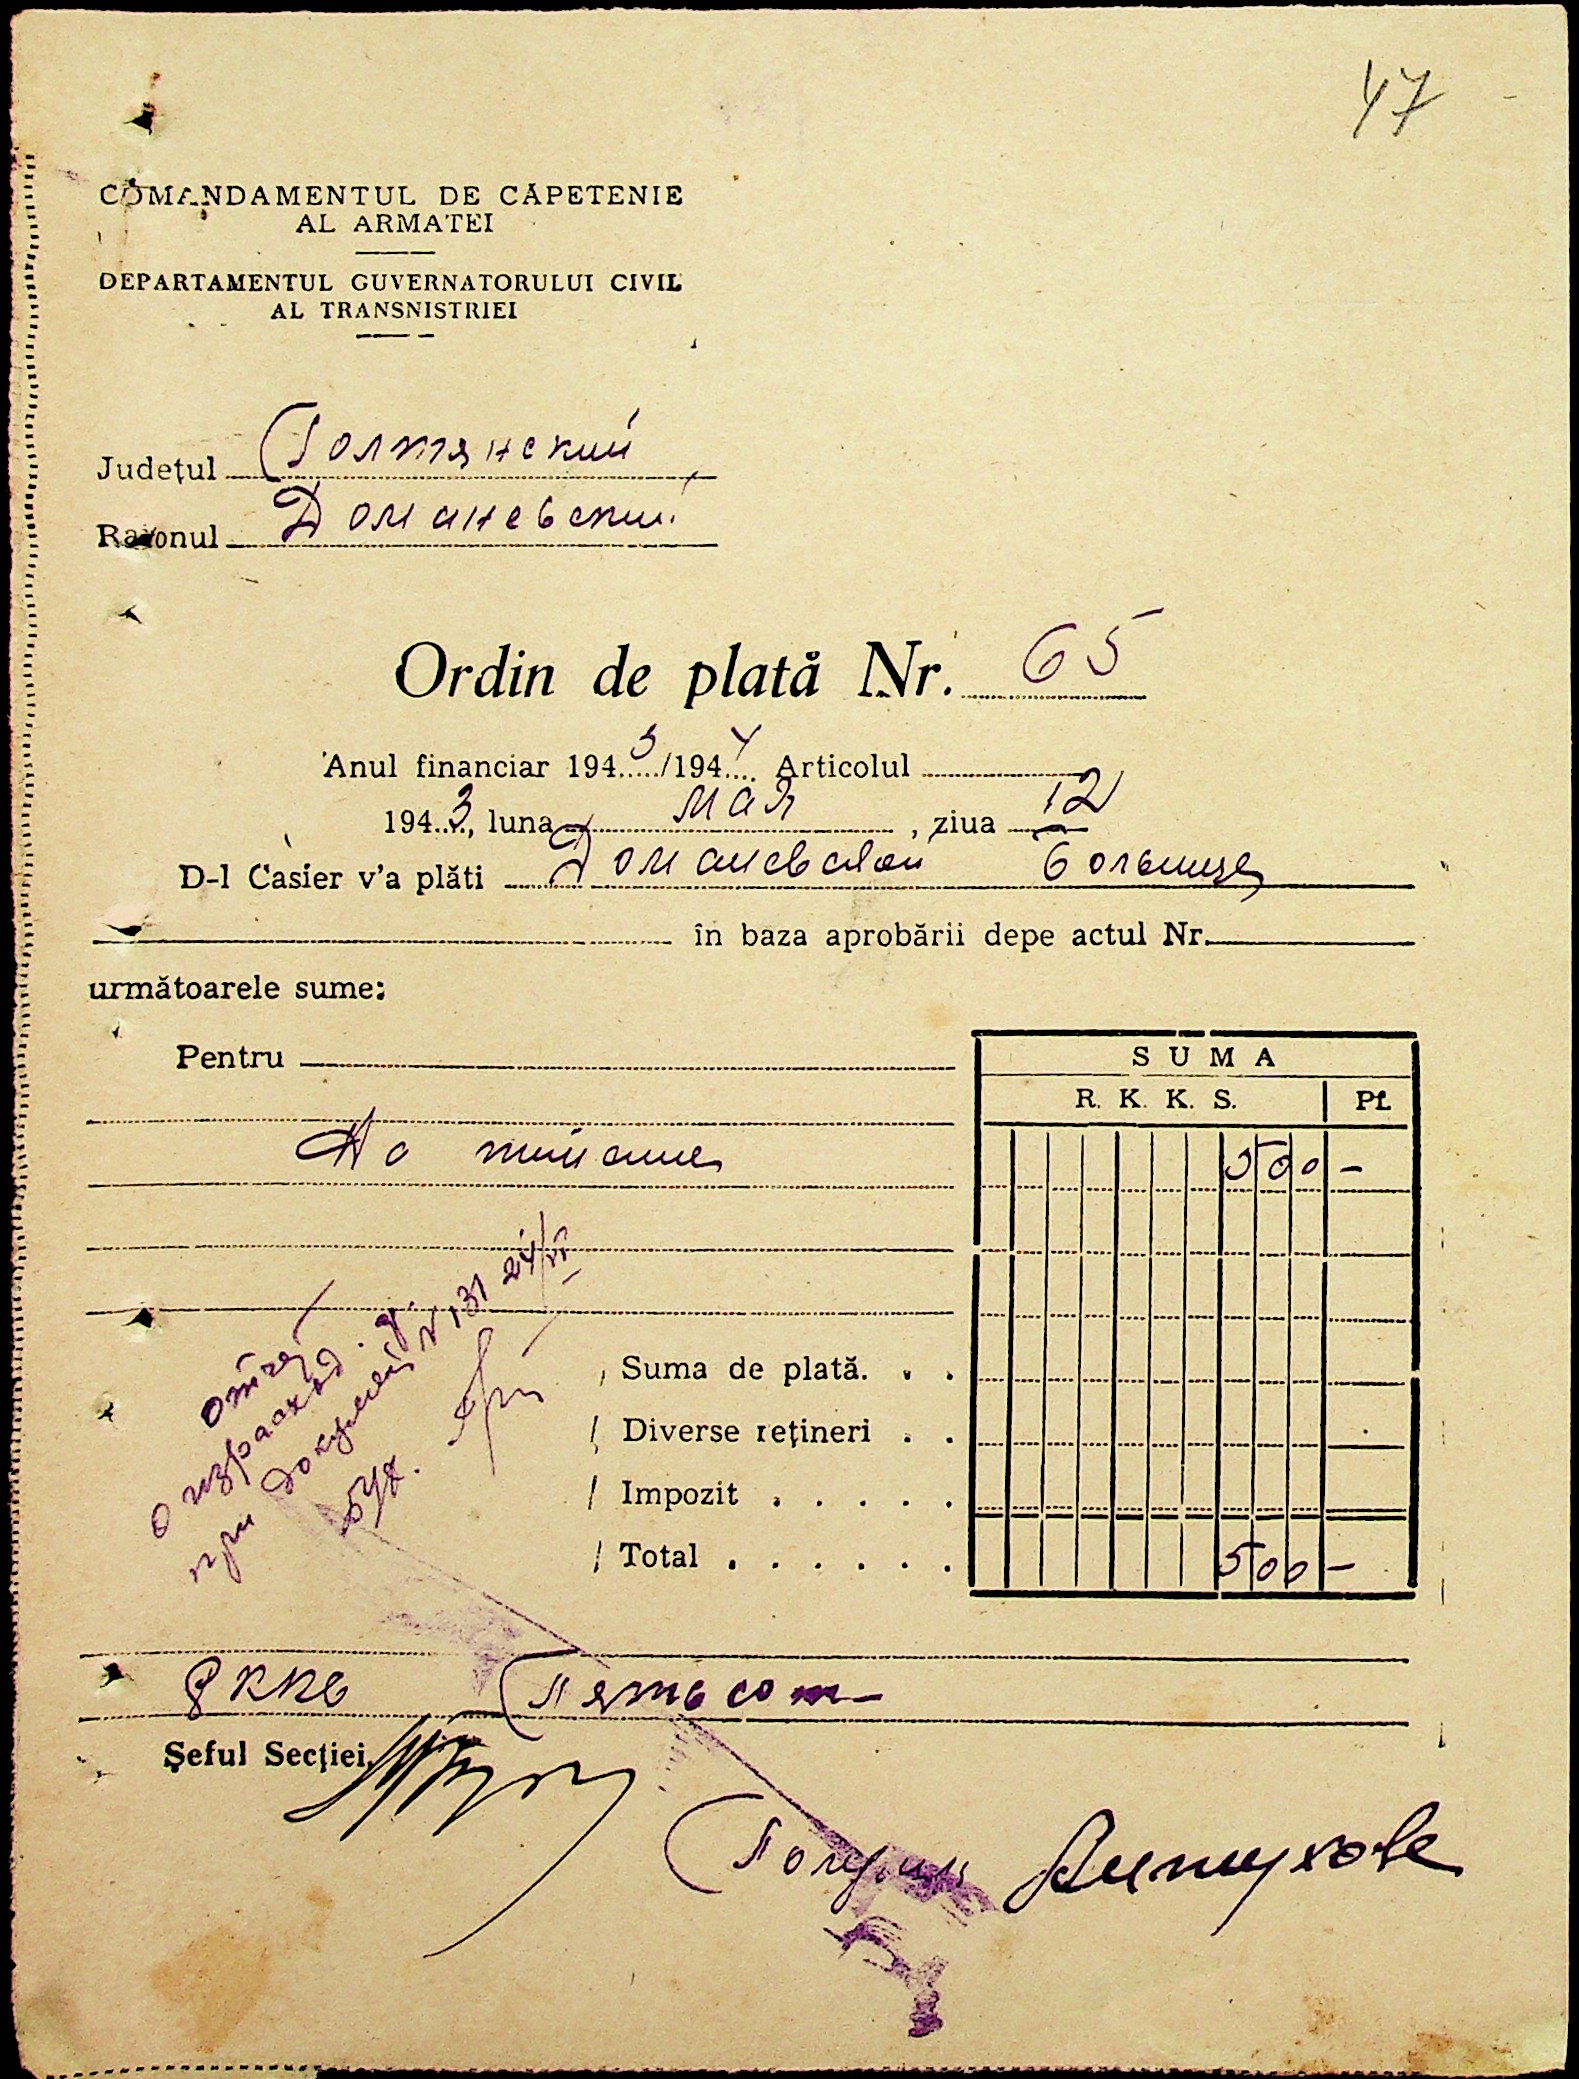 47
COMANDAMENTUL DE CĂPETENIE
AL ARMATEI
DEPARTAMENTUL GUVERNATORULUI CIVIL
AL TRANSNISTRIEI
Județul Голтянский
Raionul Доманевский
Ordin de plată Nr. 65
Anul financiar 1943/1944 Articolul
1943, luna мая, ziua 12
D-l Casier v'a plăti Доманевской больнице
în baza aprobării depe actul Nr.
următoarele sume:
Pentru
SUMA
R. K. K. S. Pf.
На питание 500 -
отчет
о израсход.
при документ N 131 24/VI
Suma de plată. . .
Diverse rețineri . .
Impozit . . . . .
Total . . . . . . 500 -
РККС Пятьсот
Șeful Secției,
Получил